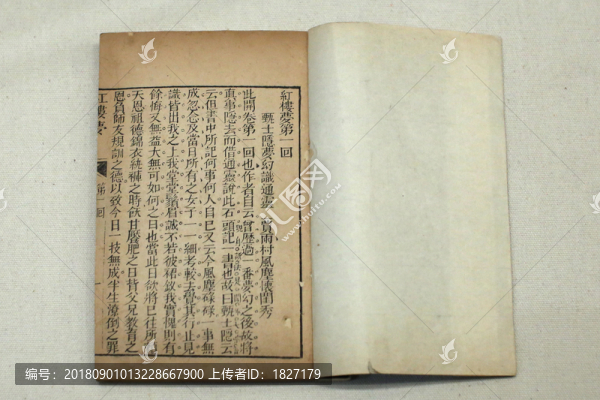 紅樓夢第一回
甄士隱夢幻識通靈　賈雨村風塵懷閨秀
此開卷第一回也作者自云曾歷過一番夢幻之後故將
真事隱去而借通靈說此石頭記一書也故曰甄士隱云
云但書中所記何事何人自己又云今風塵碌碌一事無
成忽念及當日所有之女子一一細考較去覺其行止見
識皆出我之上我堂堂鬚眉誠不若彼裙釵我實愧則有
餘悔又無益大無可如何之日也當此日欲將已往所
天恩祖德錦衣紈褲之時飫甘饜肥之日背父兄教育之
恩負師友規訓之德以致今日一技無成半生潦倒之罪
紅樓夢 第一回
汇图网
www.huitu.com
编号：20180901013228667900 上传者ID：1827179